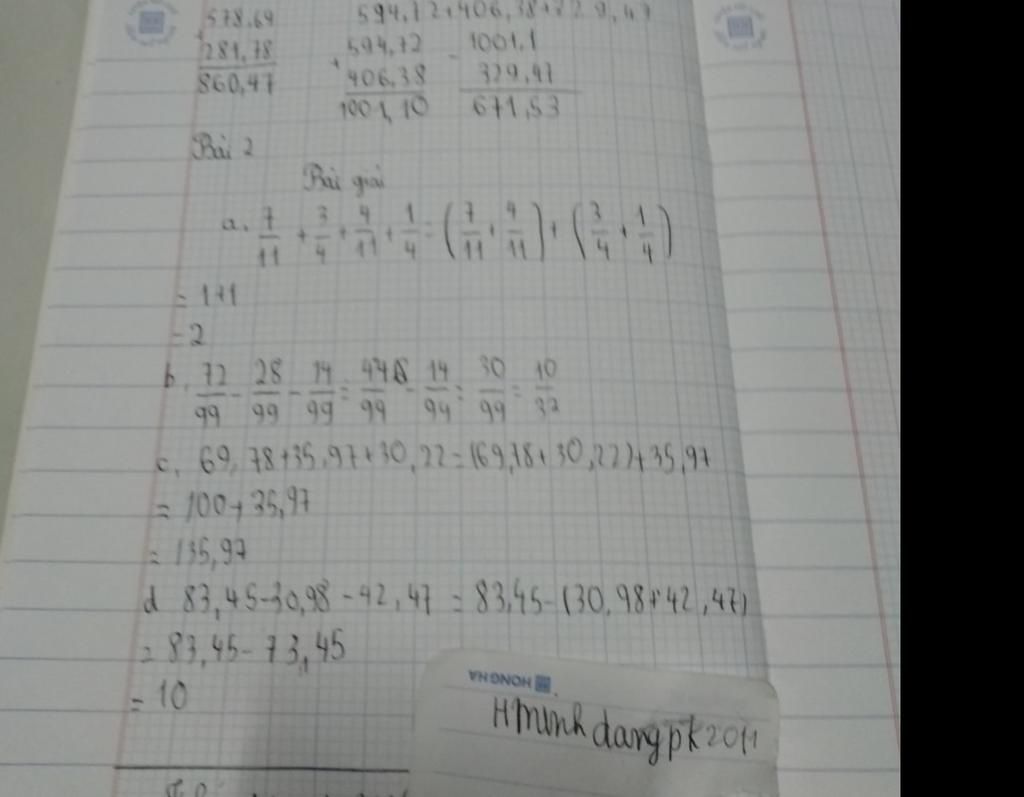 578,69 594,72+406,38+329,47
+ 281,78 + 594,72 - 1001,1
860,47 406,38 329,47
1001,10 671,53
Bài 2
Bài giải
a. 7/11 + 3/4 + 4/11 + 1/4 = (7/11 + 4/11) + (3/4 + 1/4)
= 1+1
= 2
b. 72/99 - 28/99 - 14/99 = 44/99 - 14/99 = 30/99 = 10/33
c, 69,78+35,97+30,22=(69,78+30,22)+35,97
= 100+35,97
= 135,97
d 83,45-30,98-42,47 = 83,45-(30,98+42,47)
= 83,45-73,45
= 10
HONG HA
Hminhdangpk2011